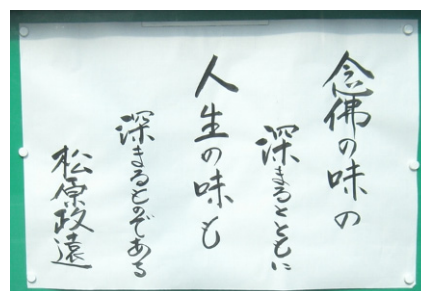 念佛の味の
深まるとともに
人生の味も
深まるものである
松原政遠